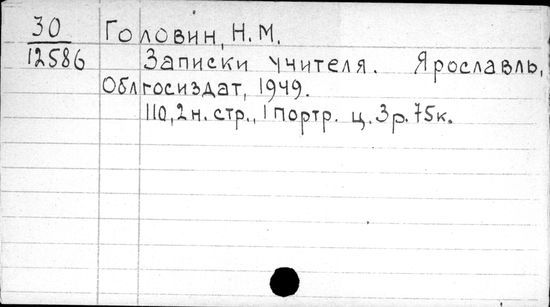 30 Головин, Н.М.
12586 Записки учителя. Ярославль,
Облгосиздат, 1949.
110, 2 н. стр., 1 портр. ц. 3 р. 75 к.